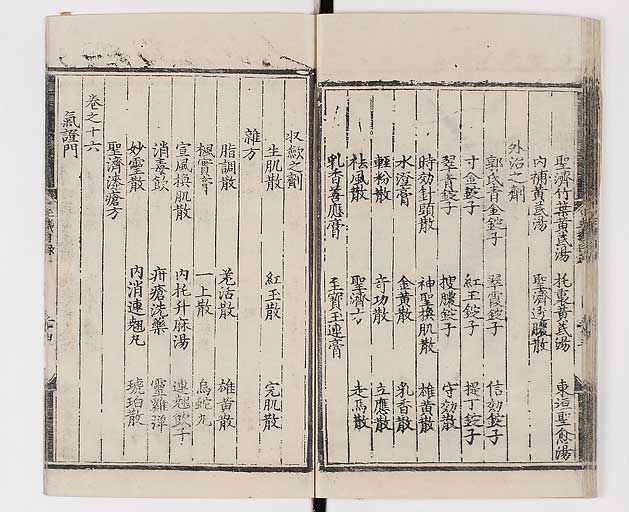 聖濟竹葉黃芪湯 托裏黃芪湯 東垣聖愈湯
內補黃芪湯 聖濟透膿散
外治之劑
郭氏青金錠子 翠霞錠子 信効錠子
寸金錠子 紅玉錠子 提丁錠子
翠青錠子 搜膿錠子 守効散
時効針頭散 神聖換肌散 雄黃散
水澄膏 金黃散 乳香散
輕粉散 奇功散 立應散
祛風散 聖濟方 走馬散
乳香善應膏 至寶玉連膏
收斂之劑
生肌散 紅玉散 完肌散
雜方
脂調散 羌活散 雄黃散
楓實膏 一上散 烏蛇丸
宣風換肌散 內托升麻湯 連翹飲子
消毒飲 疥瘡洗藥 靈雞彈
妙靈散 內消連翹丸 琥珀散
聖濟漆瘡方
卷之十六
氣證門